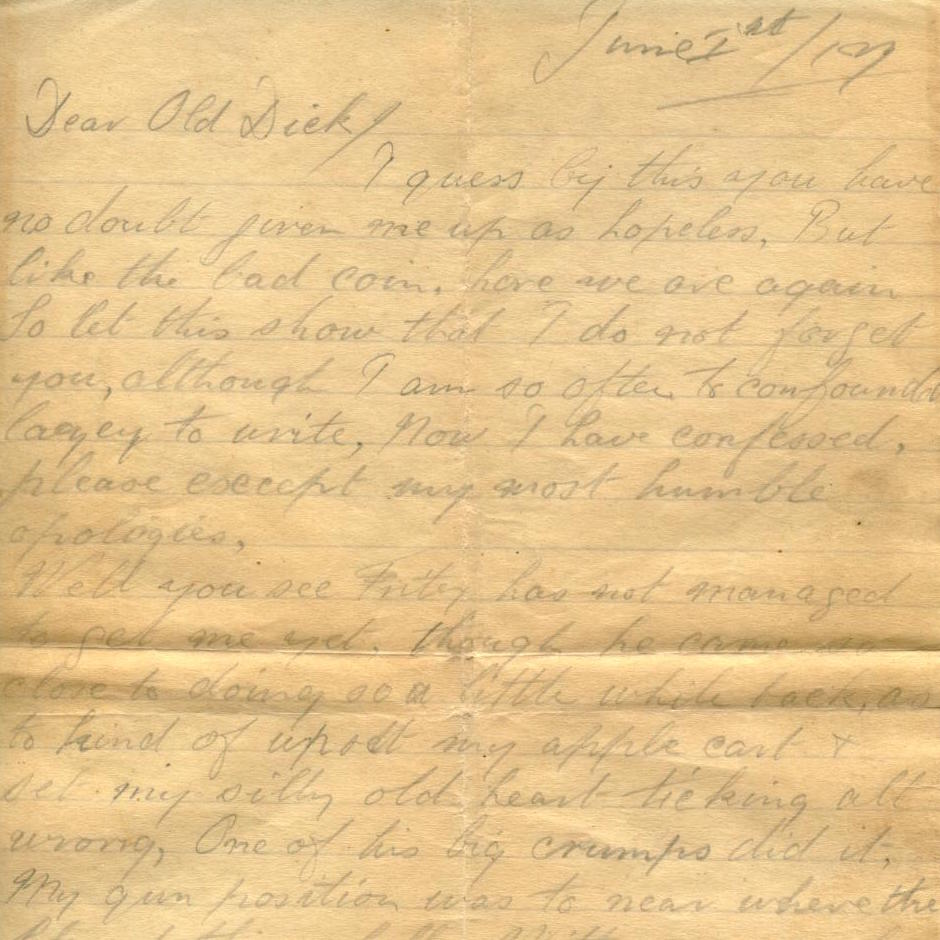 June 1st /17
Dear Old Dick/
I guess by this you have
no doubt given me up as hopeless, But
like the bad coin, here we are again
So let this show that I do not forget
you, although I am so often to confounded
lazey to write, Now I have confessed,
please except my most humble
apologies,
Well you see Fritz has not managed
to get me yet, though he came so
close to doing so a little while back, as
to kind of upset my apple cart &
set my silly old heart ticking all
wrong, One of his big crumps did it,
My gun position was to near where the